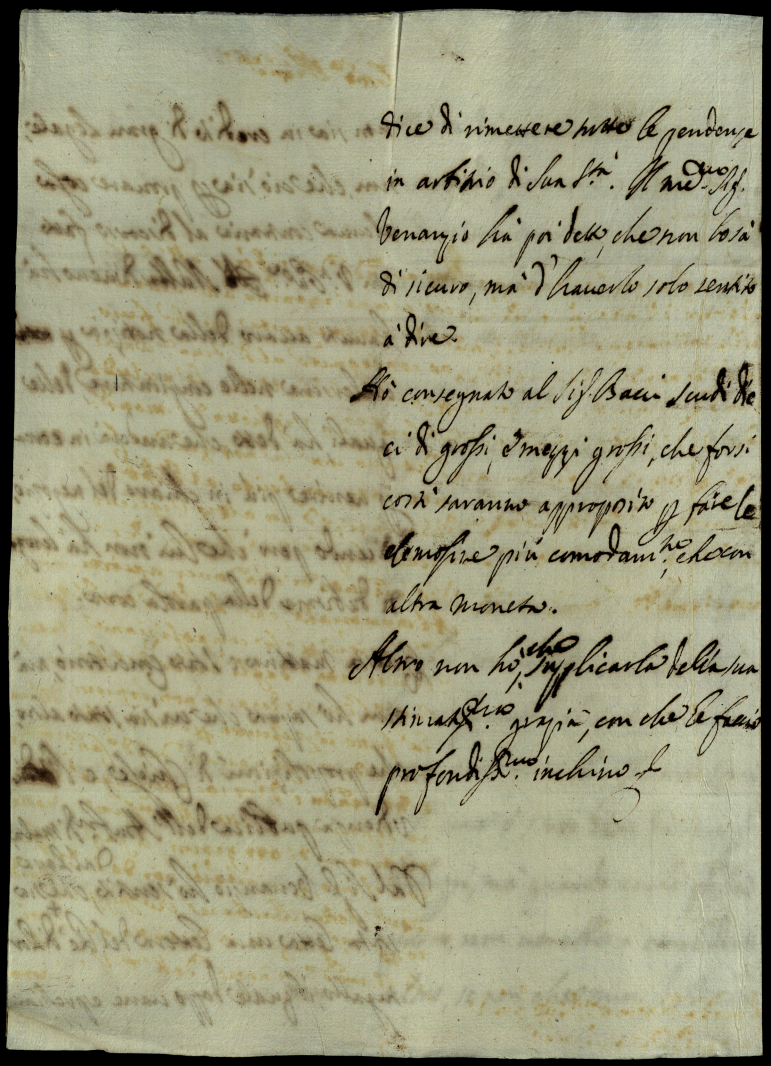 dice di rimettere tutte le pendenze
in arbitrio di Sua S.tà. Il med.mo Sig.
Venanzio hà poi detto, che non lo sà
di sicuro, mà d'hauerlo solo sentito
à dire.
Hò consegnato al Sig. Bacci scudi die
ci di grossi, e mezzi grossi, che forsi
costì saranno approposito p fare le
elemosine più comodam.te, che con
altra moneta.
Altro non hò, che supplicarla della sua
stimat.ma grazia, con che le faccio
profondiss.mo inchino